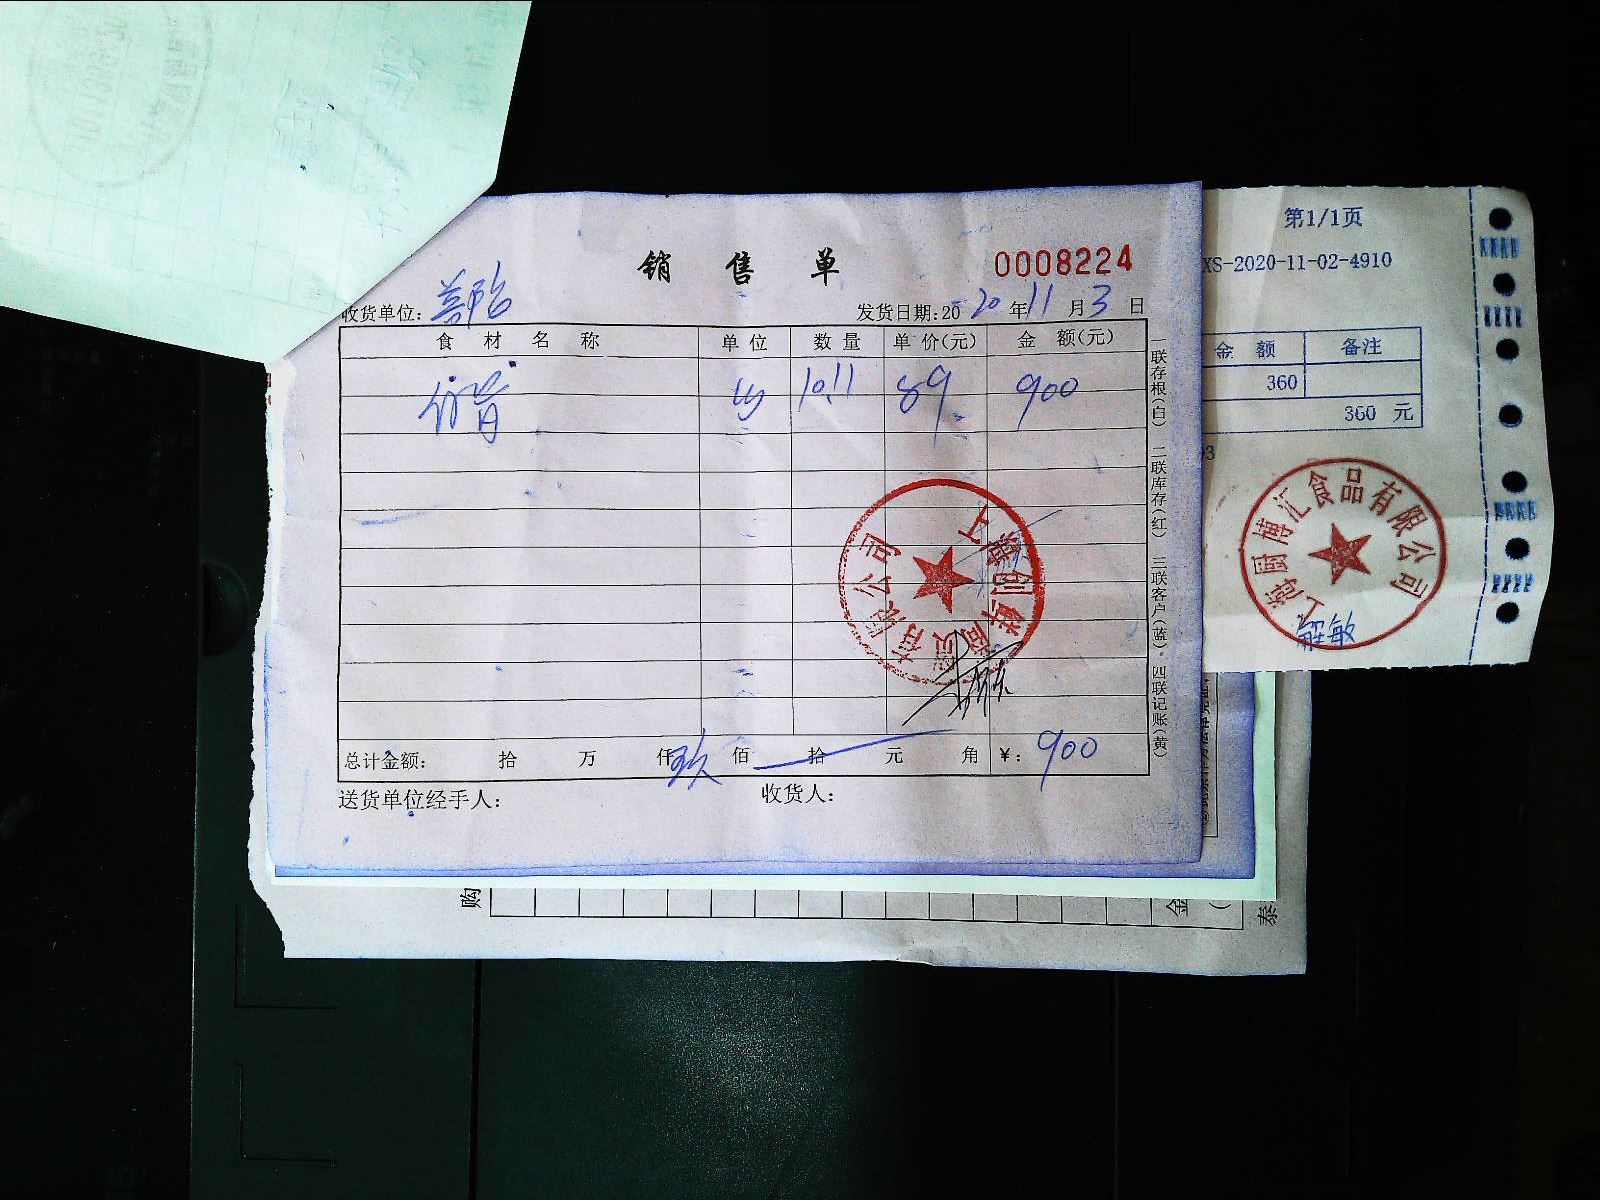 销售单
0008224
收货单位:
发货日期:2020年11月3日
食材名称 单位 数量 单价(元) 金额(元)
10.11 89 900
总计金额: 拾 万 仟 玖 佰 拾 元 角 ¥: 900
送货单位经手人: 收货人:
一联存根(白) 二联库存(红) 三联客户(蓝) 四联记账(黄)
有限公司
第1/1页
XS-2020-11-02-4910
金额 备注
360
360 元
上海厨博汇食品有限公司
解敏
购
金
泰